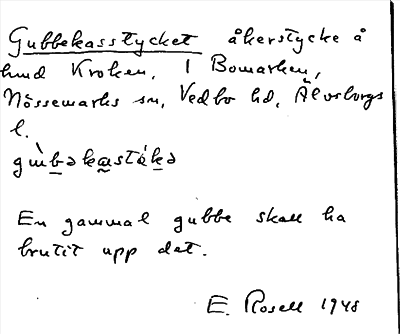 Gubbekasstycket åkerstycke å
hmd Kroken, i Bomarken,
Nössemarks sn, Vedbo hd, Älvsborgs
l.
En gammal gubbe skall ha
brutit upp det.
E. Rosell 1948